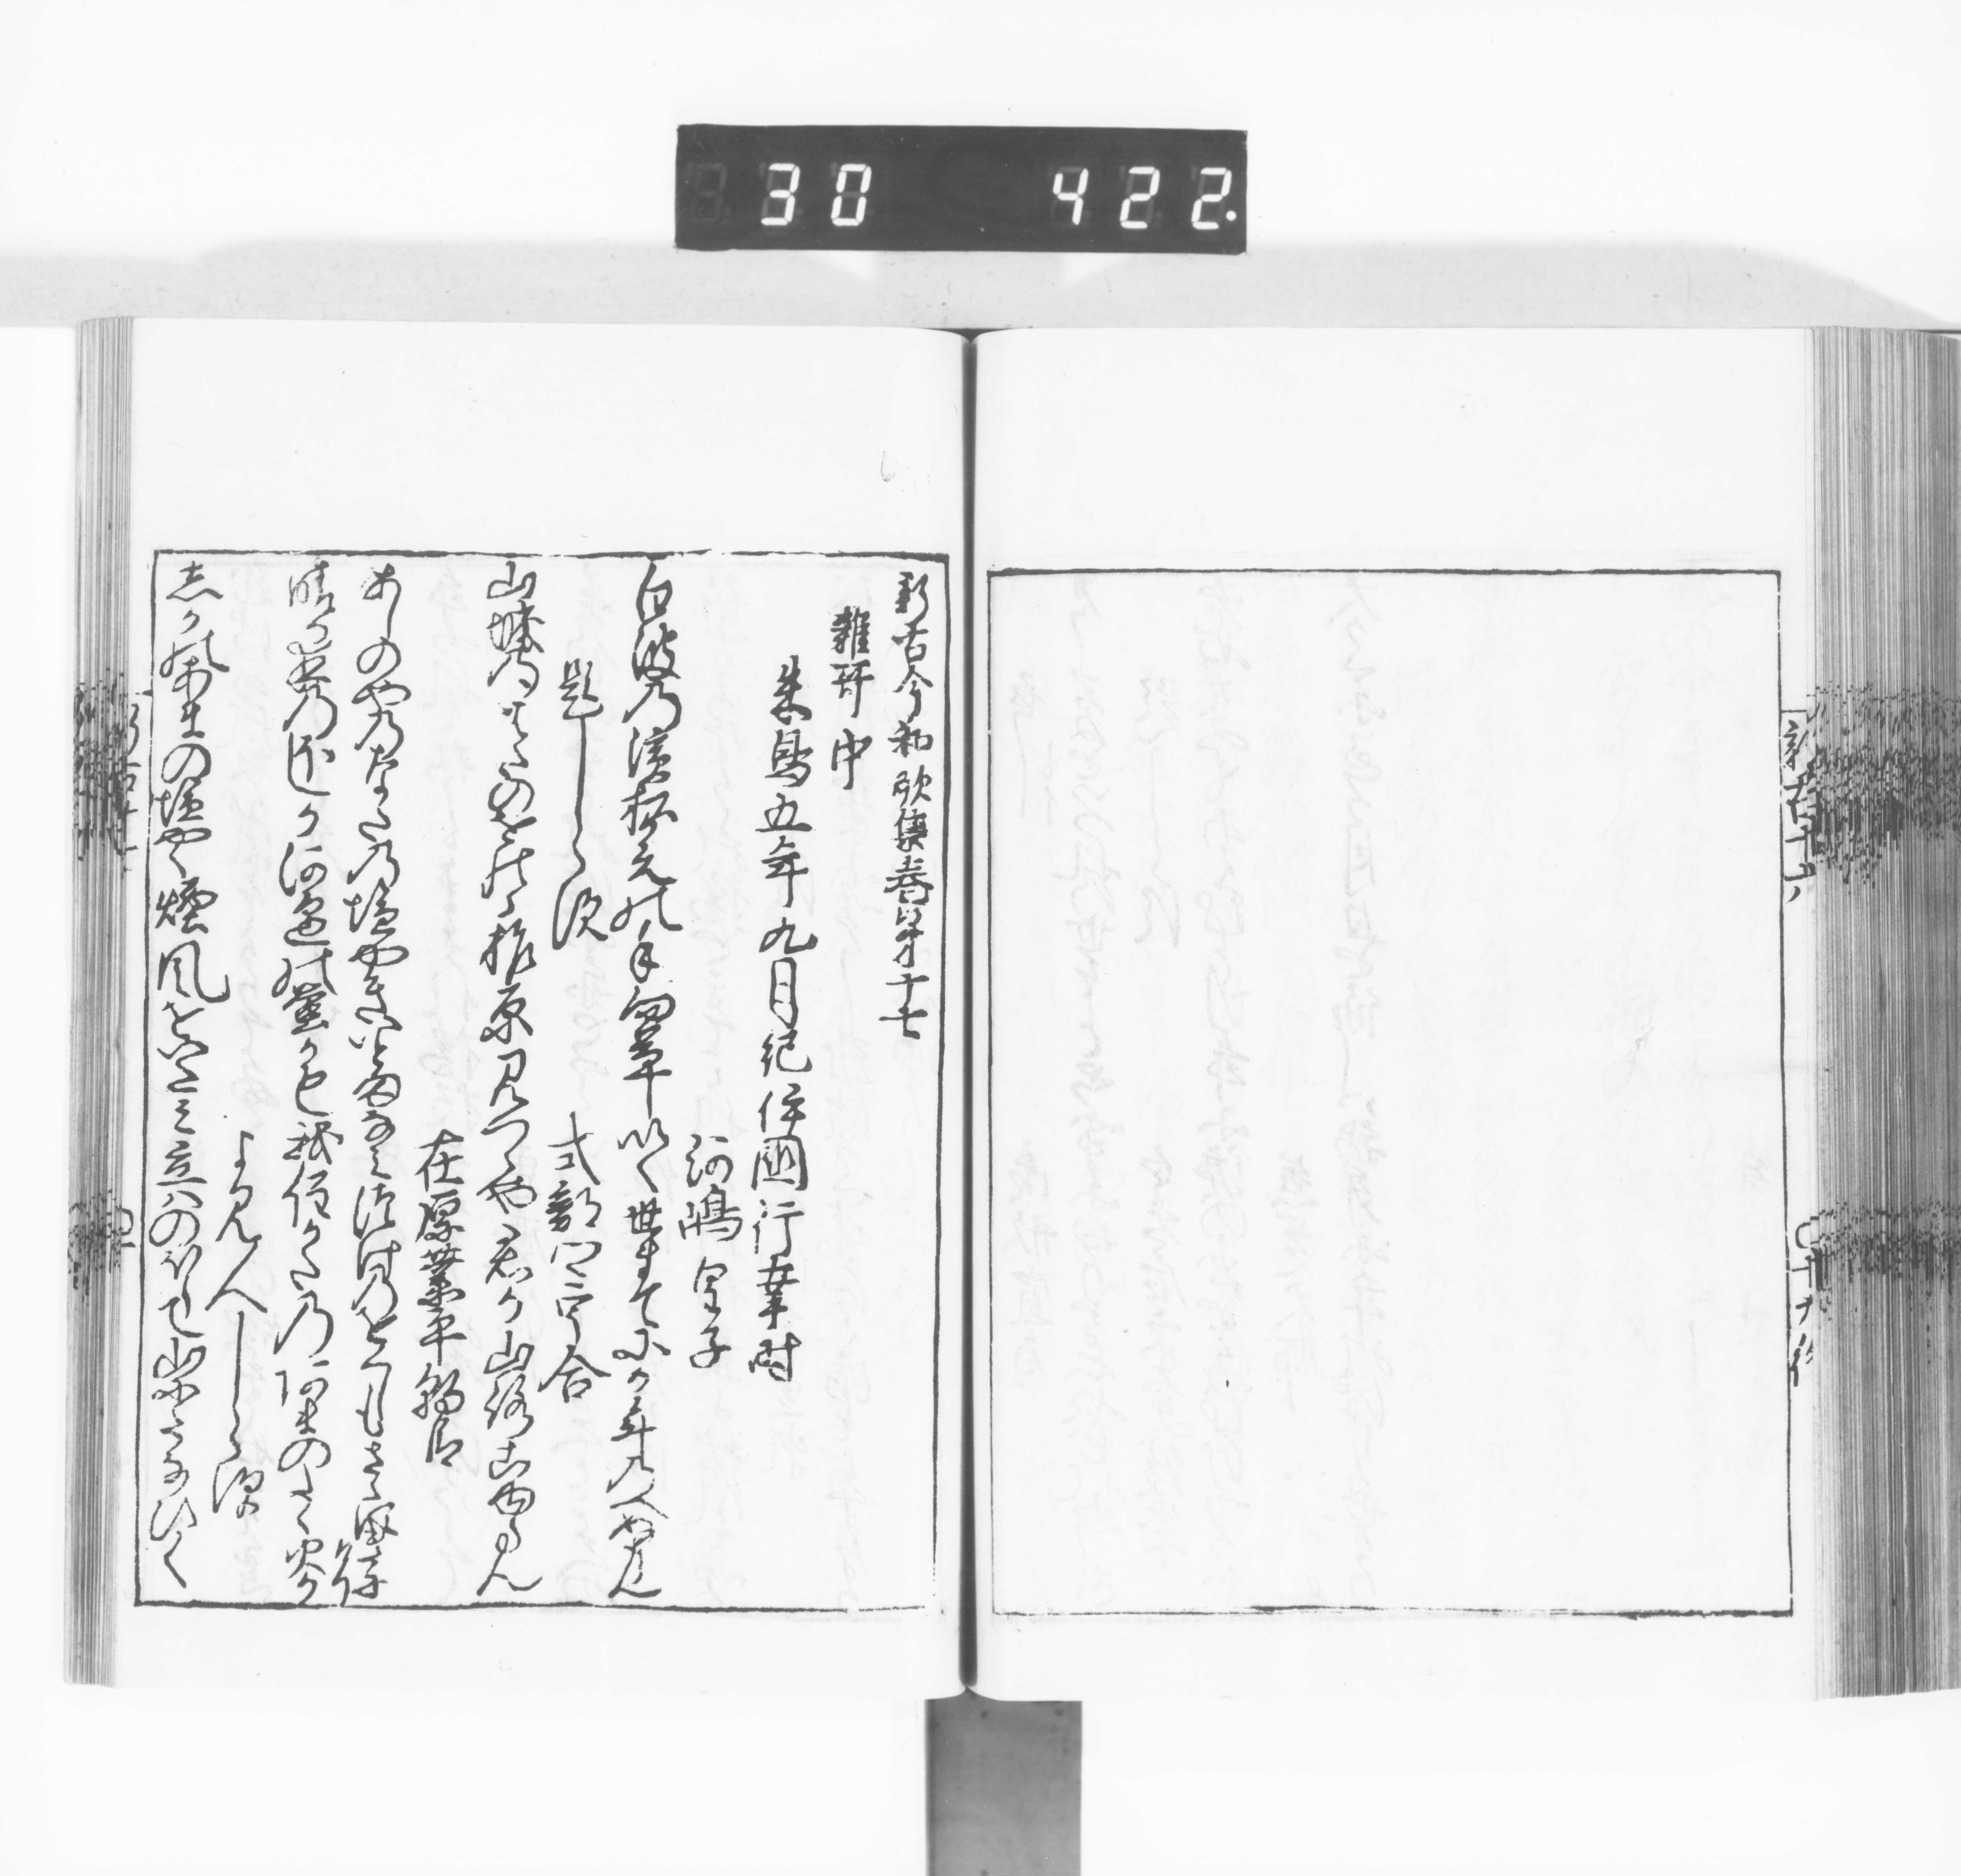 30 422.
新古今和歌集巻第十七
雑歌中
朱鳥五年九月紀伊國行幸時
河嶋皇子
白波の濱松かえの手向草いく世まてにか年のへぬらん
題しらす
式部卿宇合
山城のいはたのをのゝ柞原見つゝや君か山路こゆらん
在原業平朝臣
あしのやのなたの塩やきいとまなみつけのをくしもさゝすきにけり
晴るゝ夜の星か河邊の蛍かも我住かたのあまのたく火か
よみ人しらす
志かのあまの塩やく煙風をいたみ立はのほらて山にたなひく
新古十六
七十九終